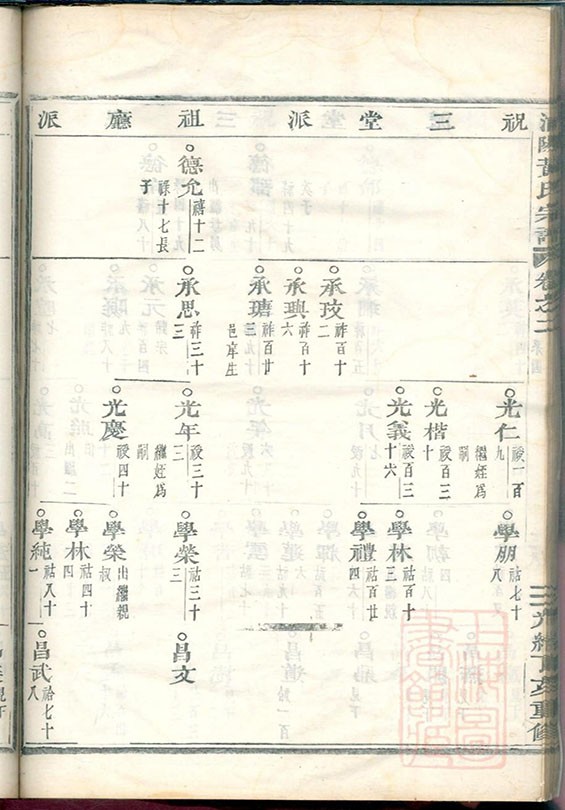 祝三堂派　祖廳派
黃氏宗譜
卷之二
光緒丁亥重修
德允 禧十二 祿十七長子
承玟 祚百十二
承璵 祚百十六
承瑭 祚百廿三 邑庠生
承思 祚三十三
光仁 祾一百九
光楷 祾百三十 繼姪爲嗣
光義 祾百三十六
光年 祾三十三 繼姪爲嗣
光慶 祾四十
學朋 祜七十八
學林 祜百十三
學禮 祜百廿四
學榮 祜三十三
學榮 出繼親叔
學林 祜四十四
學純 祜八十一
昌文
昌武 祫七十八